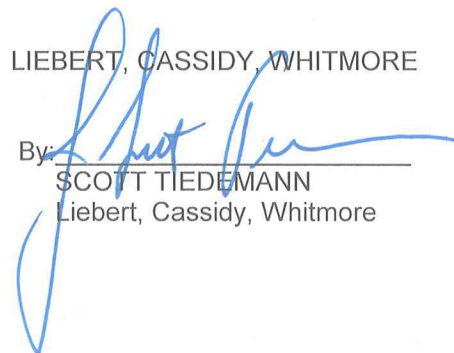 LIEBERT, CASSIDY, WHITMORE
By:
SCOTT TIEDEMANN
Liebert, Cassidy, Whitmore